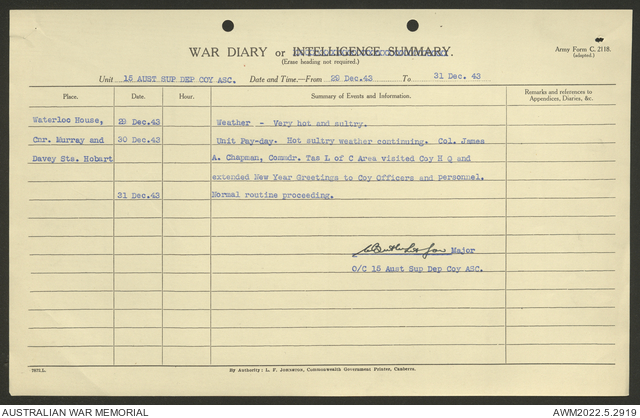 WAR DIARY or INTELLIGENCE SUMMARY.
(Erase heading not required.)
Army Form C. 2118.
(adapted.)
Unit 15 AUST SUP DEP COY ASC. Date and Time:—From 29 Dec.43 To 31 Dec. 43
Place. Date. Hour. Summary of Events and Information. Remarks and references to
Appendices, Diaries, &c.
Waterloo House, 29 Dec.43 Weather - Very hot and sultry.
Cnr. Murray and 30 Dec.43 Unit Pay-day. Hot sultry weather continuing. Col. James
Davey Sts. Hobart A. Chapman, Commdr. Tas L of C Area visited Coy H Q and
extended New Year Greetings to Coy Officers and Personnel.
31 Dec.43 Normal routine proceeding.
Major
O/C 15 Aust Sup Dep Coy ASC.
By Authority: L. F. Johnston, Commonwealth Government Printer, Canberra.
AUSTRALIAN WAR MEMORIAL AWM2022.5.2919